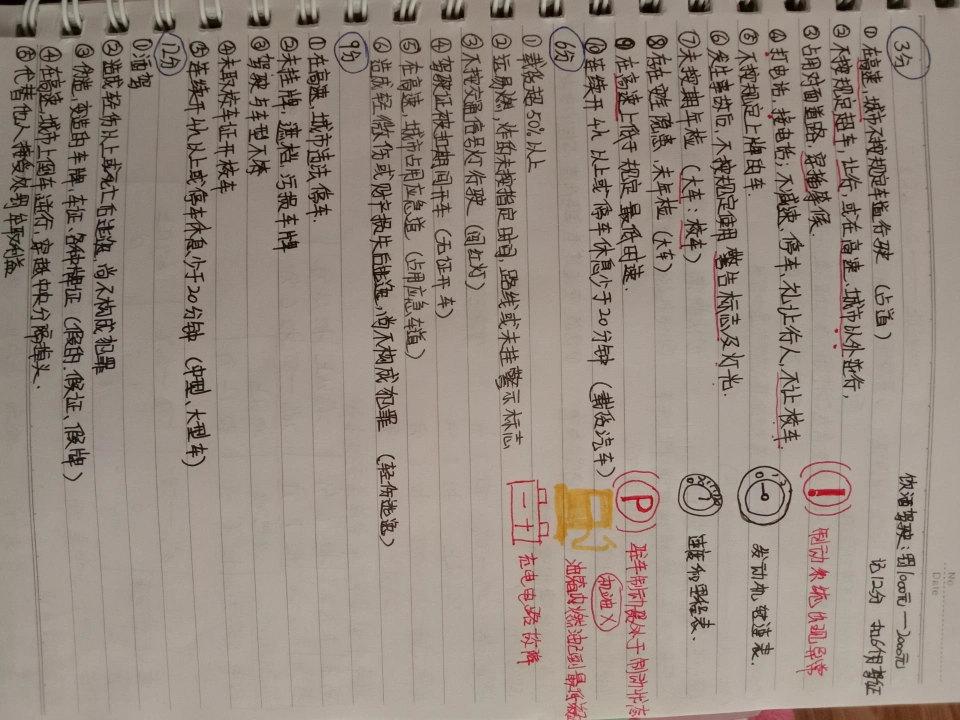 No
Date
饮酒驾驶:罚1000元—2000元
记12分 扣6个月驾证
3分
① 在高速,城市不按规定车道行驶 (占道)
② 不按规定超车,让行,或在高速、城市以外逆行,
③ 占用对面道路,穿插等候.
④ 打电话,接电话,不减速、停车、礼让行人,不让校车
⑤ 不按规定上牌的车.
⑥ 发生事故后,不按规定使用警告标志及灯光.
⑦ 未按期年检 (大车:校车)
⑧ 存在隐患、未年检 (大车)
⑨ 在高速上低于规定最低时速.
⑩ 连续开4h以上或停车休息少于20分钟 (载货汽车)
6分
① 载货超50%以上
② 运易燃,炸的未按指定时间,路线或未挂警示标志
③ 不按交通信号灯行驶 (闯红灯)
④ 驾驶证被扣期间开车 (无证开车)
⑤ 在高速,城市占用应急道 (占用应急车道)
⑥ 造成轻微伤或财产损失后逃逸,尚不构成犯罪 (轻伤逃逸)
9分
① 在高速,城市违法停车.
② 未挂牌,遮档,污损车牌
③ 驾驶与车型不符
④ 未取校车证开校车
⑤ 连续开4h以上或停车休息少于20分钟 (中型、大型车)
12分
① 酒驾
② 造成轻伤以上或死亡后逃逸,尚不构成犯罪
③ 伪造、变造的车牌,车证,各种牌证 (假的,假证,假牌)
④ 在高速,城市上倒车逆行,穿越中央分隔掉头.
⑤ 代替他人接受处罚牟取利益
! 制动系统出现异常
发动机转速表.
速度和里程表.
P 驻车制动器处于制动状态
加油X
油箱内燃油已到最低
充电电路故障